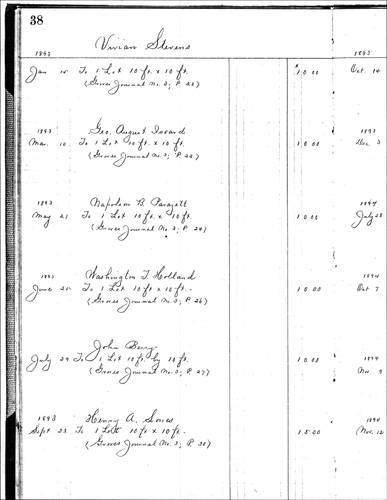 38
Vivian Stevens
1893 1893
Jan 15 To 1 Lot 10 ft. x 10 ft. $10 00 Oct. 14
(Graves Journal No. 3; P. 20)
1893 Geo. August Isoard 1893
Mar. 10 To 1 Lot 10 ft. x 10 ft. 10 00 Dec 3
(Graves Journal No. 3; P. 22)
1893 Napoleon B. 1894
May 21 To 1 Lot 10 ft. x 10 ft. 10 00 July 28
(Graves Journal No. 3; P. 24)
1893 Washington T. Holland 1894
June 25 To 1 Lot 10 ft x 10 ft. 10 00 Oct 7
(Graves Journal No. 3; P. 26)
John Berry
July 29 To 1 Lot 10 ft by 10 ft. 10 00 1894
(Graves Journal No. 3; P. 27) Nov. 9
1893 Henry A. Jones 1894
Sept 23 To 1 Lot 10 ft x 10 ft. 15 00 (Nov. 12
(Graves Journal No. 3; P. 30)